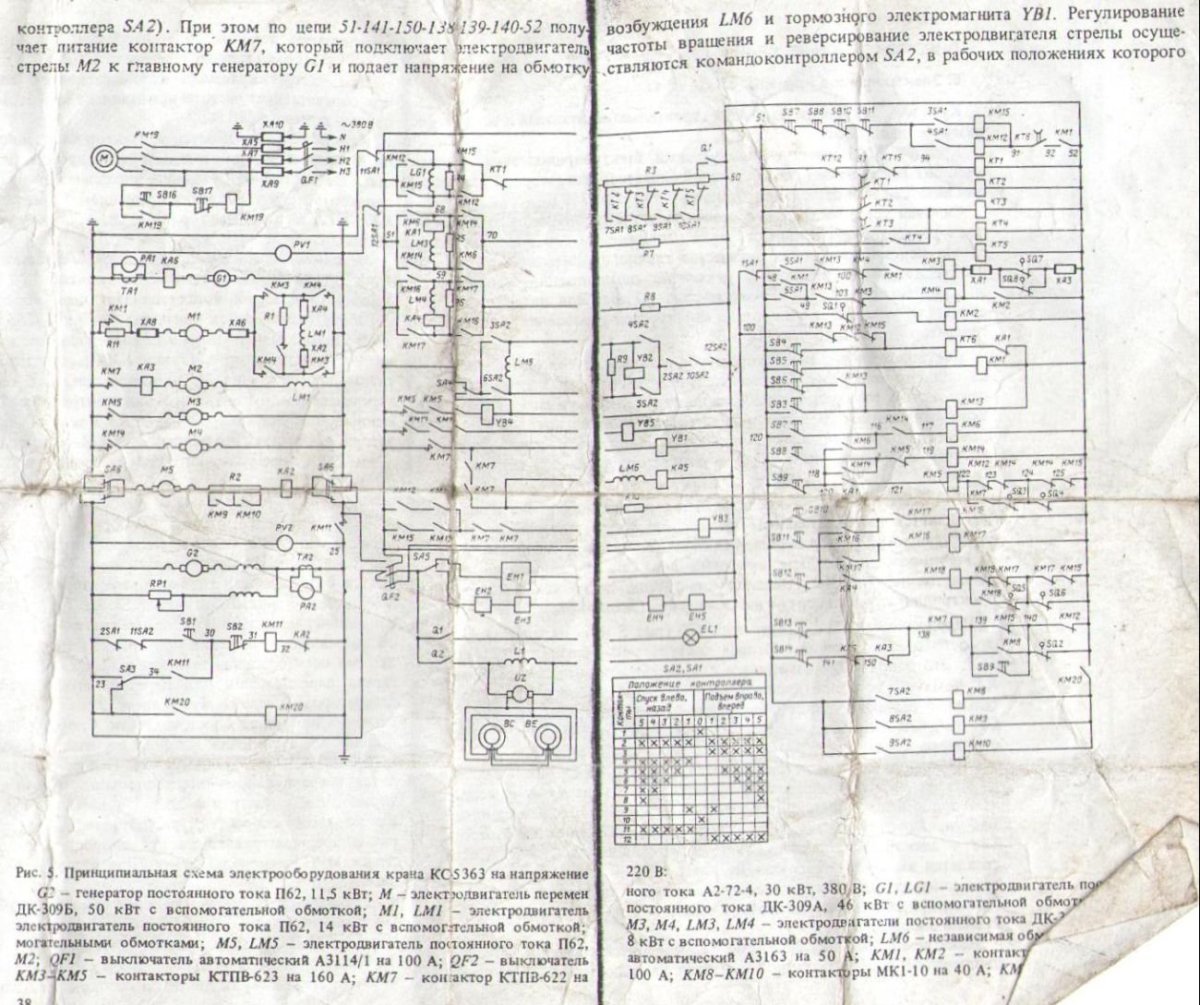 контроллера SA2). При этом по цепи 51-141-150-138-139-140-52 полу-
чает питание контактор KM7, который подключает электродвигатель
стрелы M2 к главному генератору G1 и подает напряжение на обмотку
возбуждения LM6 и тормозного электромагнита YB1. Регулирование
частоты вращения и реверсирование электродвигателя стрелы осуще-
ствляются командоконтроллером SA2, в рабочих положениях которого
KM19
XA10
~380В
XA5
N
XA7
H1
H2
H3
M
XA9
QF1
SB16
SB17
KM19
KM19
PV1
PA1
KA6
G1
TA1
KM3
KM4
R1
XA4
KM1
XA8
M1
XA6
LM1
R11
XA2
KM4
KM3
KM7
KA3
M2
LM1
KM5
M3
KM14
M4
SA6
M5
R2
KA2
SA6
KM9
KM10
KM11
PV2
25
G2
TA2
RP1
PA2
2SA1
11SA2
SB1
30
SB2
31
KM11
32
KA2
SA3
34
KM11
23
KM20
KM20
11SA1
12SA1
KM12
LG1
KM15
KM15
KT1
KM12
68
51
KM6
KA1
LM3
KM14
KM14
70
KM6
59
KM16
LM4
KA4
KM17
KM17
KM16
3SA2
LM5
6SA2
SA4
KM5
KM5
YB4
KM7
KM7
KM7
KM12
KM15
KM15
KM15
KM7
KM7
SA5
QF2
EH1
EH2
EH3
Q1
Q2
L1
U2
BC
BE
Q1
R3
60
KT2
KT3
KT4
KT5
7SA1
8SA1
9SA1
10SA1
R7
R8
4SA2
R9
YB2
12SA2
2SA2
10SA2
5SA2
YB5
YB1
LM6
KA5
YB3
EH4
EH5
EL1
51
SB7
SB8
SB10
SB11
3SA1
KM15
4SA1
KM12
KT6
KM1
91
92
52
KT12
93
KT15
94
KT1
KT1
KT2
KT2
KT3
KT3
KT4
KT4
KT5
1SA1
5SA1
KM13
KM4
KM3
SQ7
48
KM1
100
KM1
XA1
SQ8
KA3
6SA1
KM13
103
KM3
KM4
KM2
49
SQ1
KM2
100
KM13
KM12
KM15
SB4
KT6
KA1
SB5
KM1
SB6
KM13
SB3
KM13
KM14
SB7
116
117
KM6
120
KM6
SB8
KM5
119
KM14
118
KM14
KM12
KM14
KM14
KM15
SB9
KM5
122
123
124
125
120
KA1
121
KM7
SQ3
SQ4
SB10
KM17
KM16
SB11
KM16
KM16
KM17
SB12
KM17
KM18
KM16
KM17
KM17
KM15
KA4
KM18
SQ5
SQ6
SB13
KM7
KM15
KM12
138
139
140
SB14
141
KT5
150
KA3
KM8
SQ2
SB9
KM20
7SA2
KM8
8SA2
KM9
9SA2
KM10
SA2, SA1
Положение контроллера
Контак-
ты
Спуск влево,
назад
Подъем вправо,
вперед
5 4 3 2 1 0 1 2 3 4 5
1
2
3
4
5
6
7
8
9
10
11
12
Рис. 5. Принципиальная схема электрооборудования крана КС5363 на напряжение
220 В:
G2 – генератор постоянного тока П62, 11,5 кВт; M – электродвигатель перемен
ДК-309Б, 50 кВт с вспомогательной обмоткой; M1, LM1 – электродвигатель
электродвигатель постоянного тока П62, 14 кВт с вспомогательной обмоткой;
могательными обмотками; M5, LM5 – электродвигатель постоянного тока П62,
M2; QF1 – выключатель автоматический А3114/1 на 100 А; QF2 – выключатель
KM3–KM5 – контакторы КТПВ-623 на 160 А; KM7 – контактор КТПВ-622 на
38
ного тока А2-72-4, 30 кВт, 380 В; G1, LG1 – электродвигатель
постоянного тока ДК-309А, 46 кВт с вспомогательной
M3, M4, LM3, LM4 – электродвагатели постоянного тока
8 кВт с вспомогательной обмоткой; LM6 – независимая
автоматический А3163 на 50 А; KM1, KM2 –
100 А; KM8–KM10 – контакторы МК1-10 на 40 А;